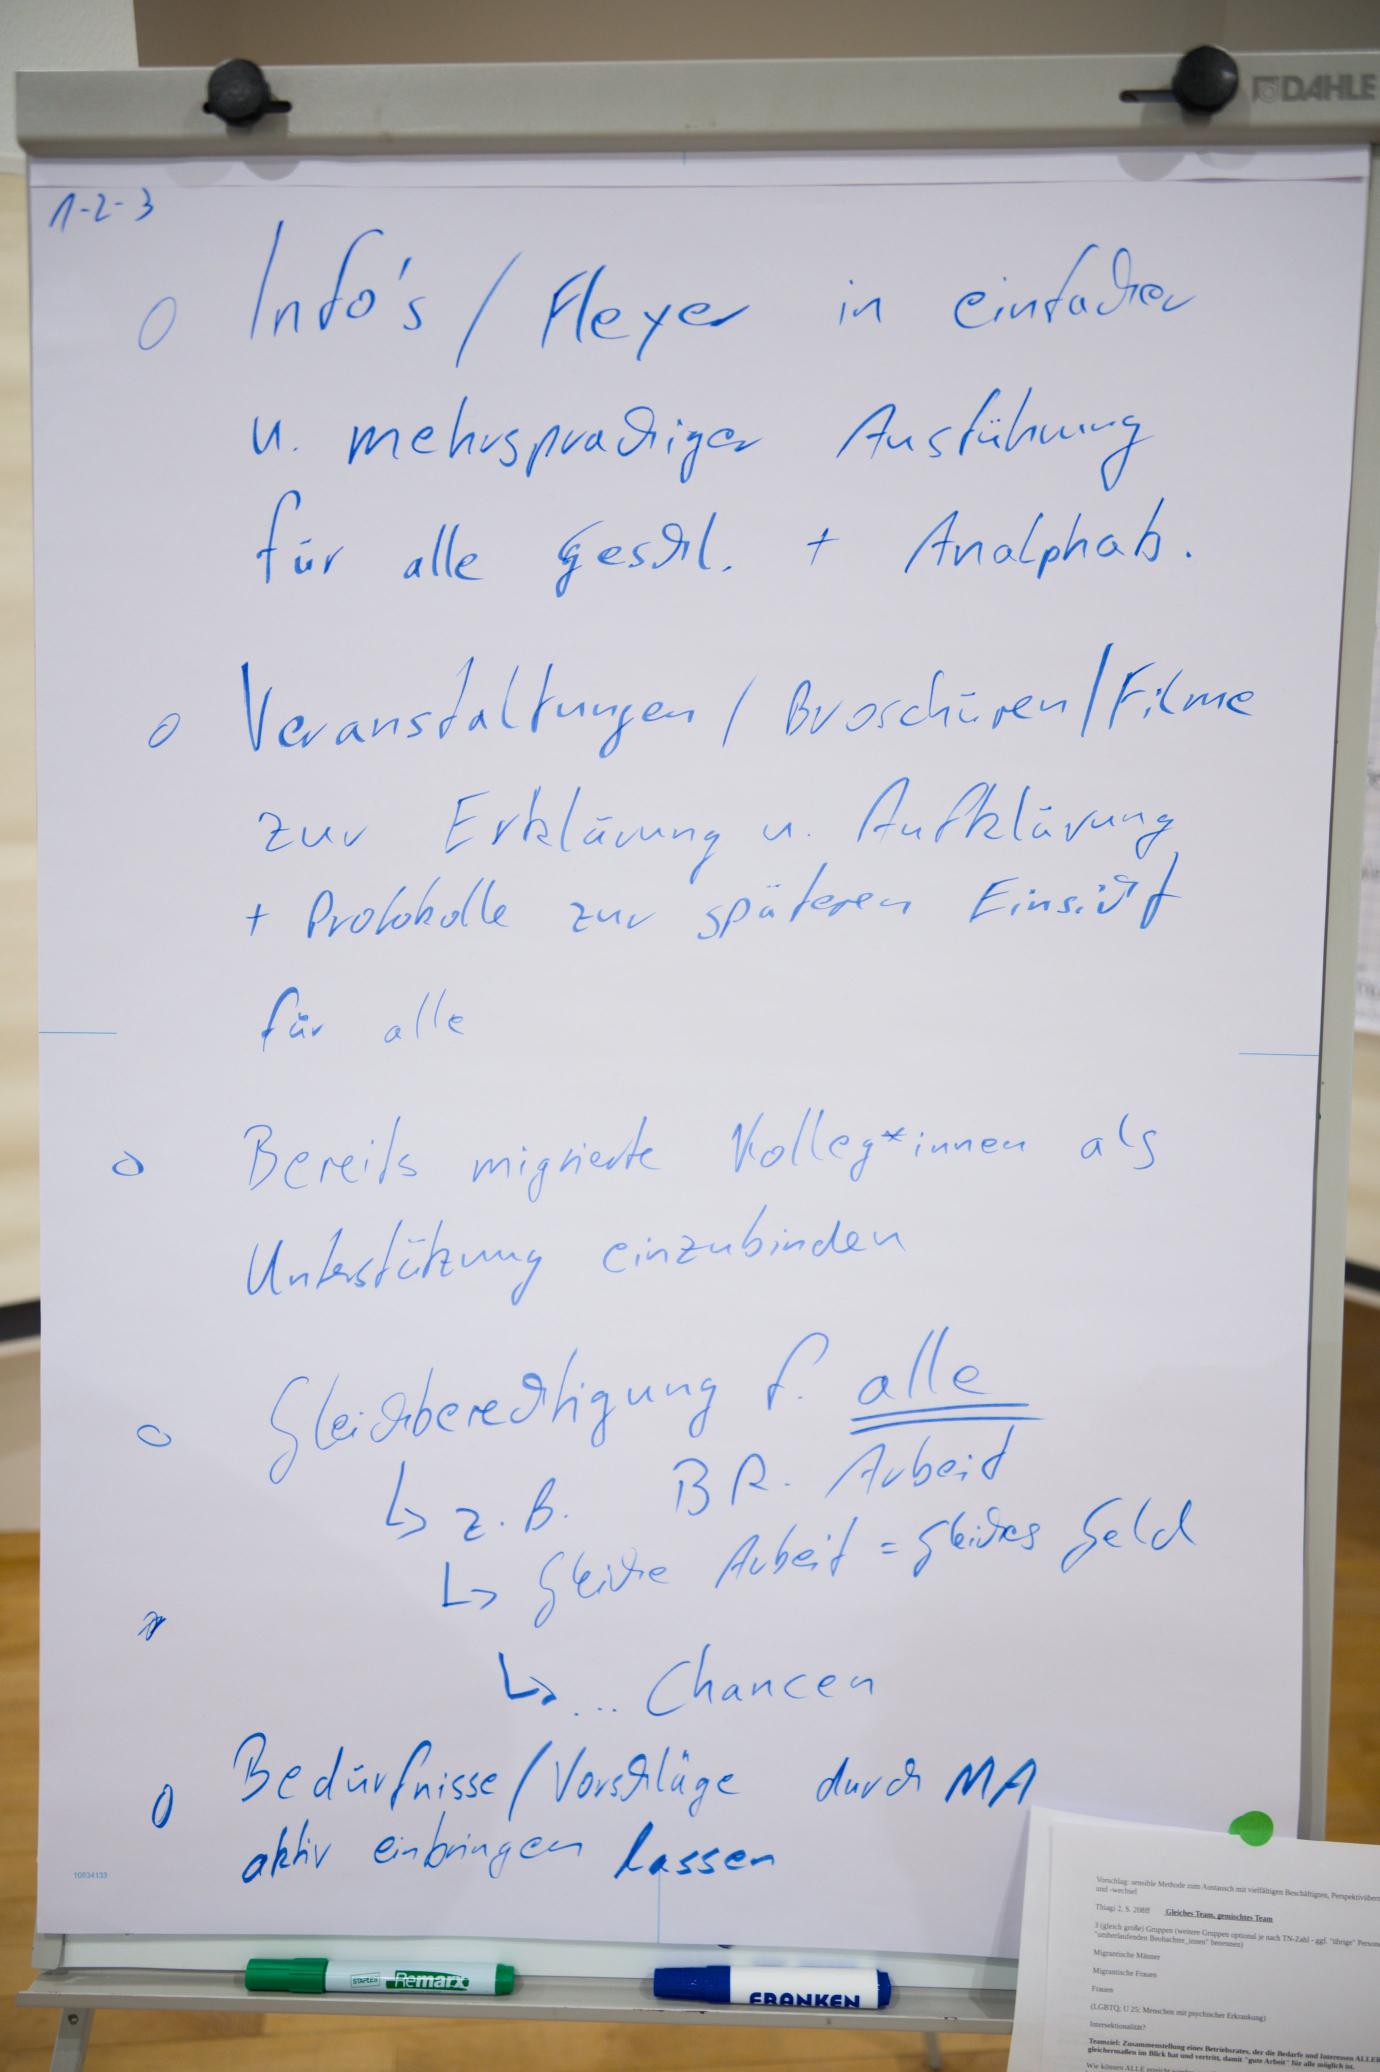 DAHLE
1-2-3
o Info's / Fleyer in einfacher
u. mehrsprachiger Ausführung
für alle Geschl. + Analphab.
o Veranstaltungen / Broschüren / Filme
zur Erklärung u. Aufklärung
+ Protokolle zur späteren Einsicht
für alle
o Bereits migrierte Kolleg*innen als
Unterstützung einzubinden
o Gleichberechtigung f. alle
↳ z.B. BR. Arbeit
↳ Gleiche Arbeit = Gleiches Geld
↳ ... Chancen
o Bedürfnisse / Vorschläge durch MA
aktiv einbringen lassen
10534133
Vorschlag: sensible Methode zum Austausch mit vielfältigen Beschäftigten,
und -wechsel
Thiagi 2, S. 208ff Gleiches Team, gemischtes Team
3 (gleich große) Gruppen (weitere Gruppen optional je nach TN-Zahl - ggf. "übrige"
"umherlaufenden Beobachter_innen" benennen)
Migrantische Männer
Migrantische Frauen
Frauen
(LGBTQ; U 25; Menschen mit psychischer Erkrankung)
Intersektionalität?
Teamziel: Zusammenstellung eines Betriebsrates, der die Bedarfe und Interessen
gleichermaßen im Blick hat und vertritt, damit "gute Arbeit" für alle möglich ist.
STAPLES Remarx
FRANKEN